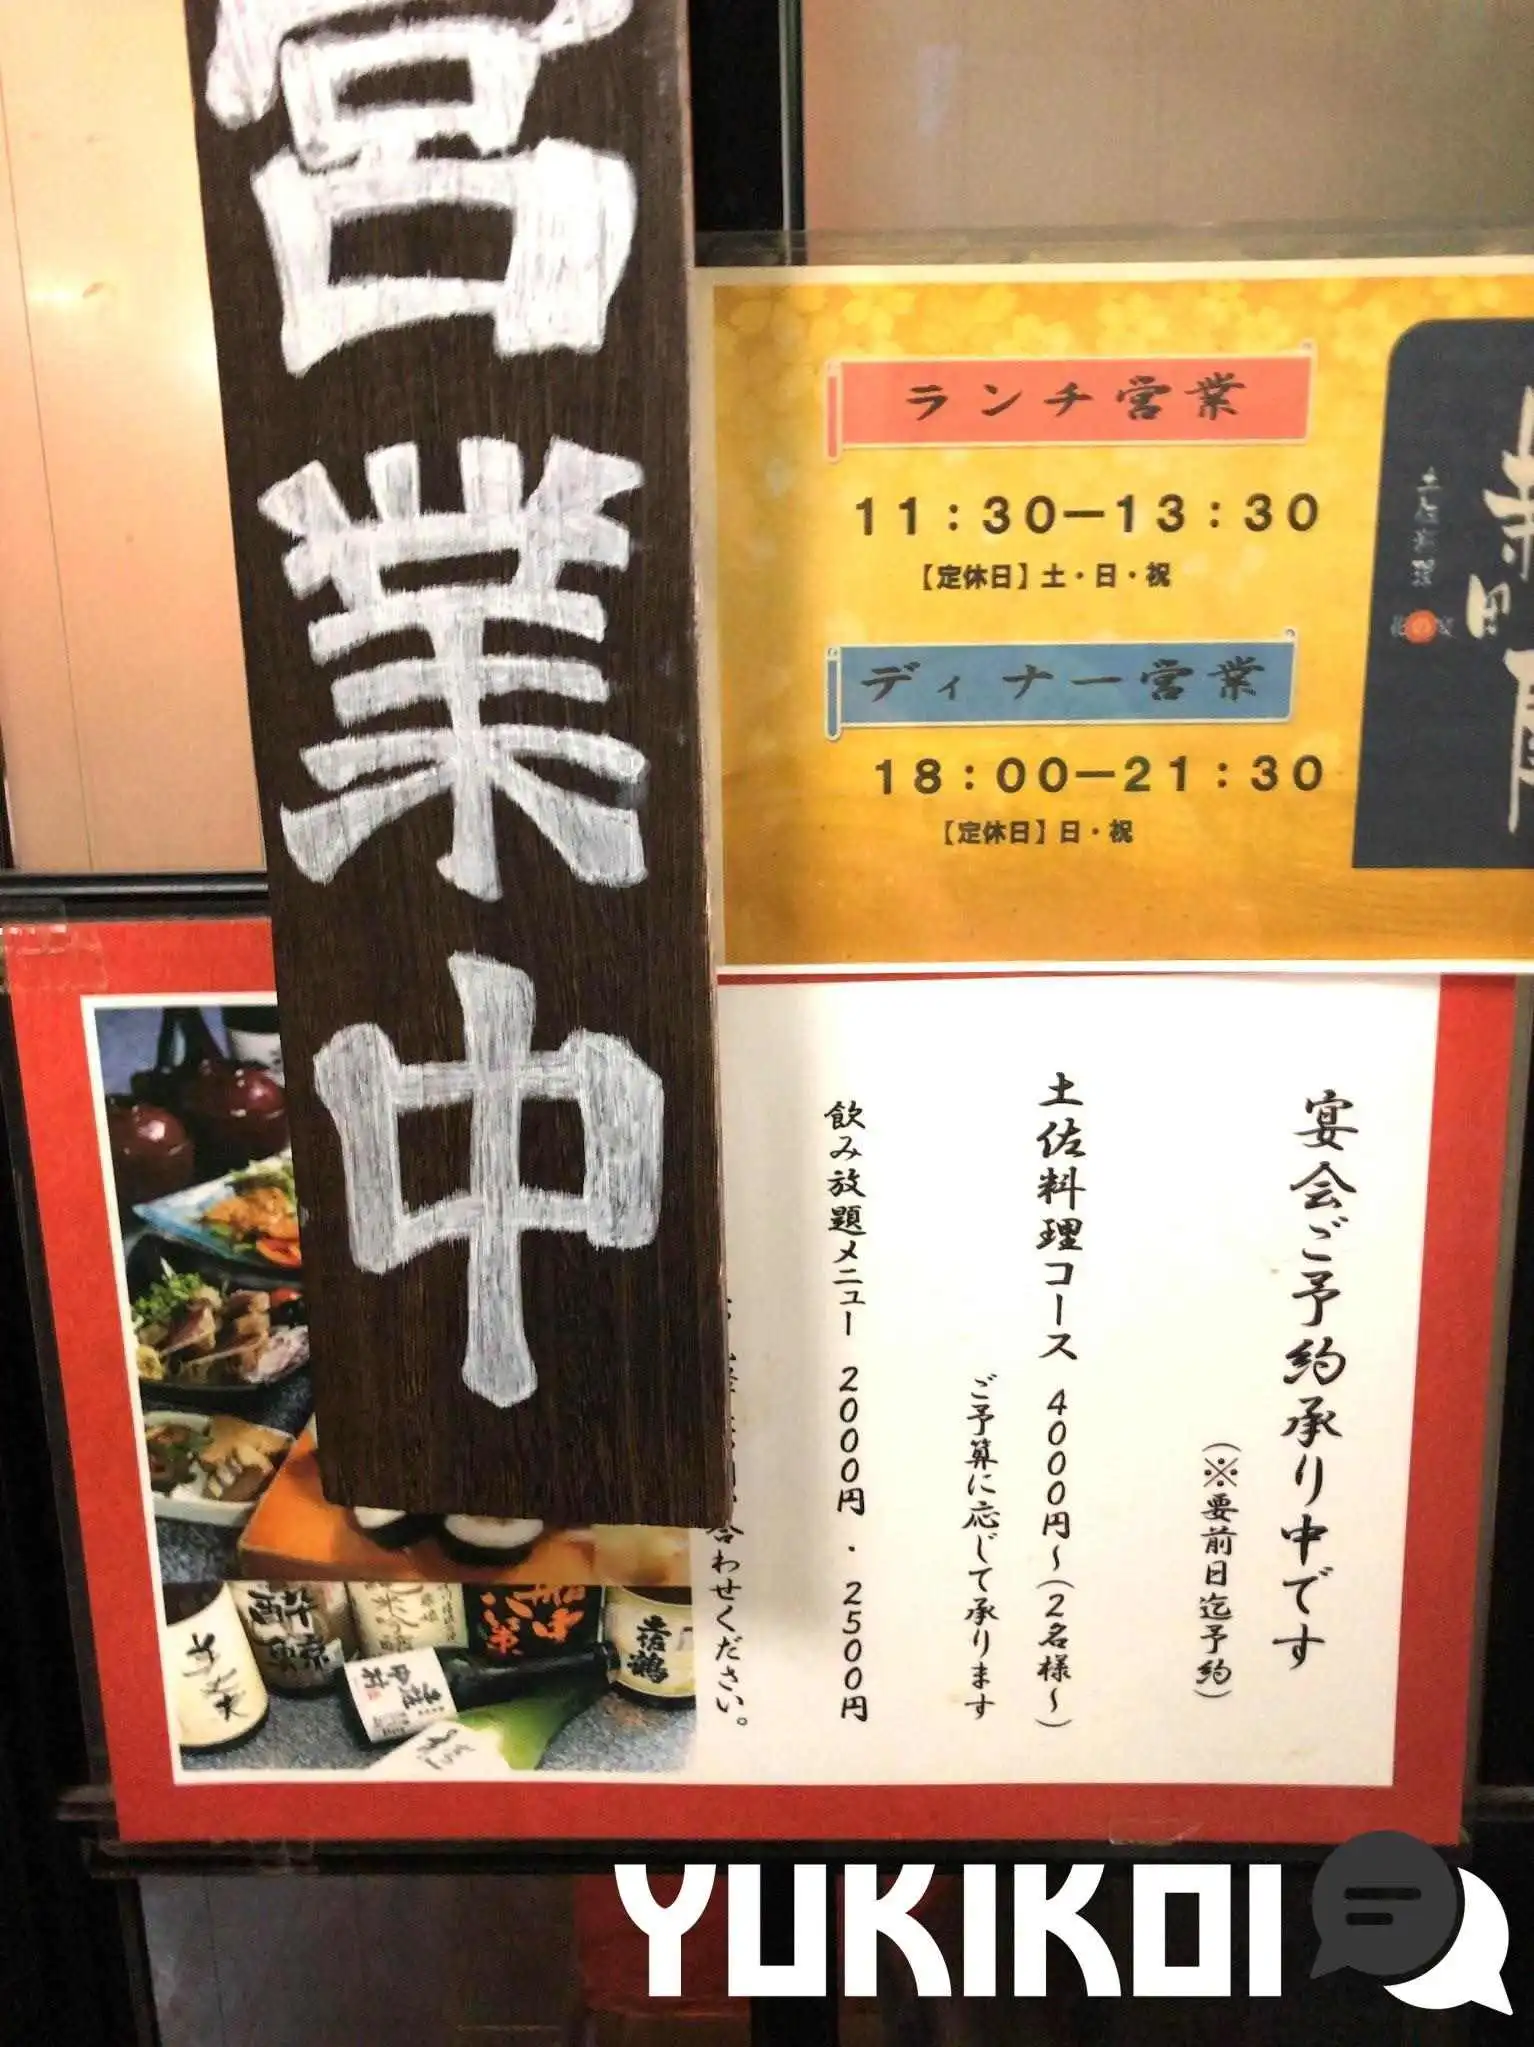 営業中
ランチ営業
11：30ー13：30
【定休日】土・日・祝
ディナー営業
18：00ー21：30
【定休日】日・祝
土佐料理
宴会ご予約承り中です
（※要前日迄予約）
土佐料理コース 4000円～（2名様～）
ご予算に応じて承ります
飲み放題メニュー 2000円・2500円
合わせください。
酔鯨
土佐鶴
YUKIKOI